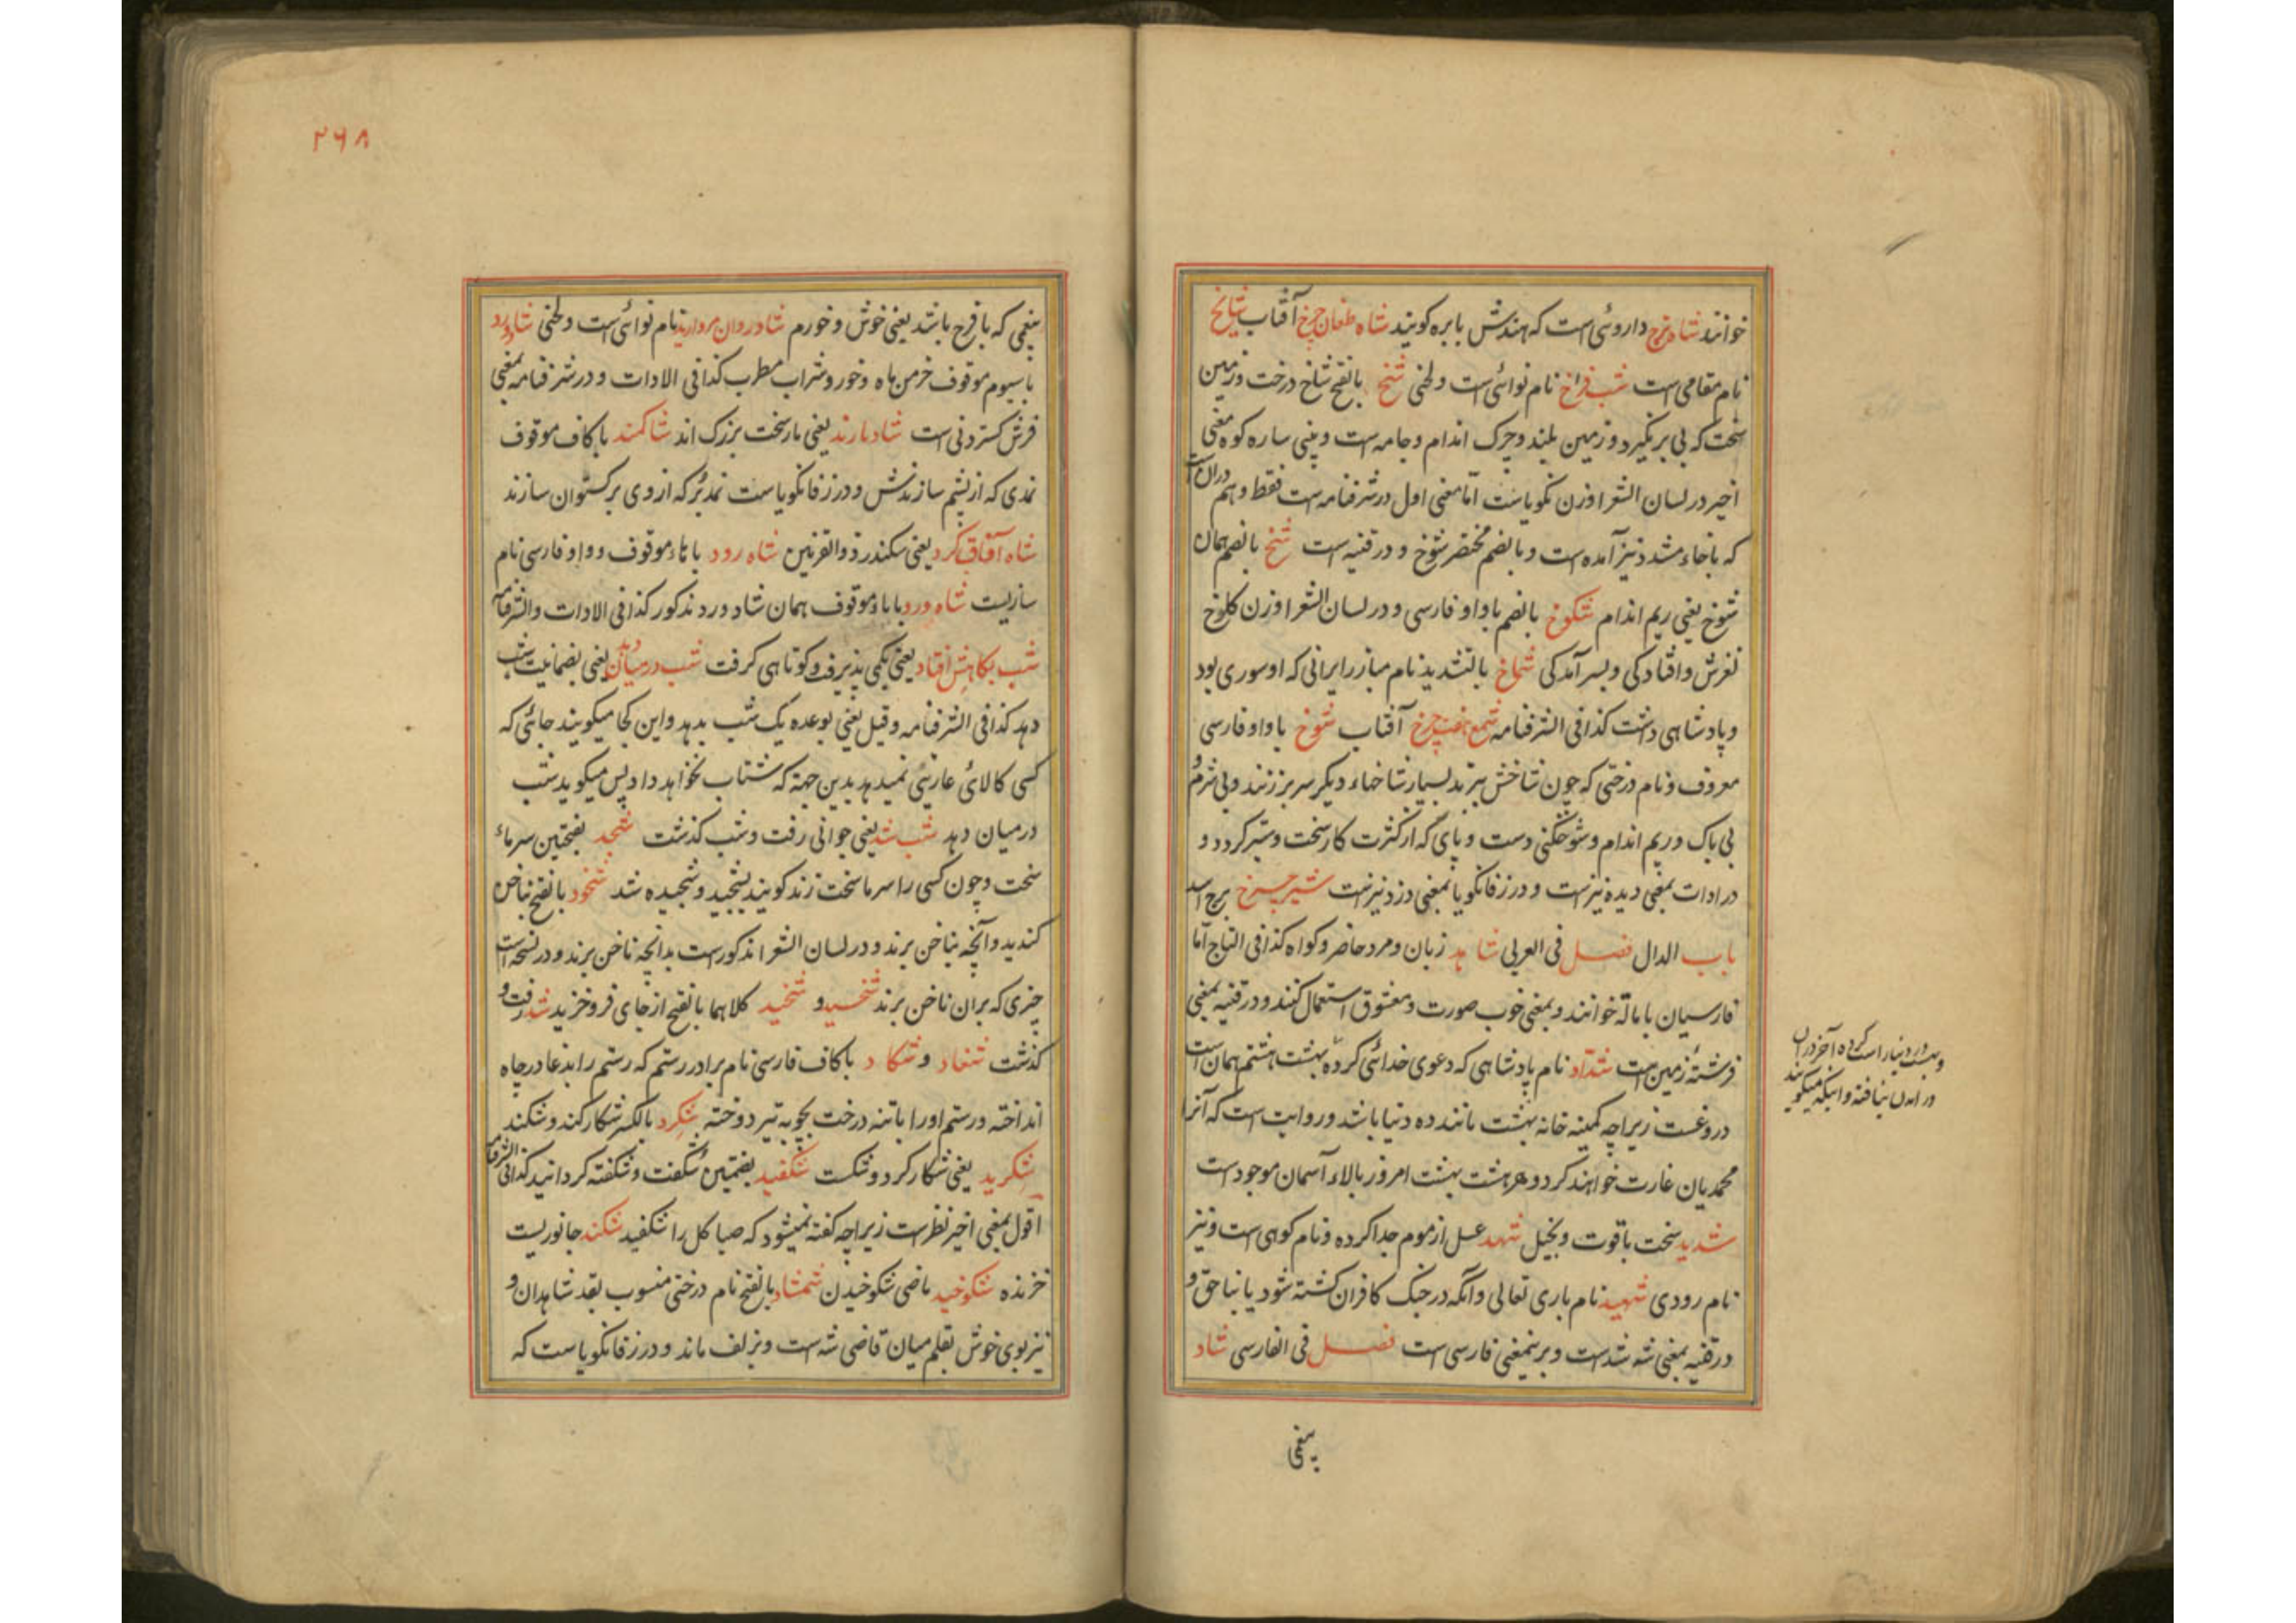 خوانند شاه ترخ داروئی است که هندش بابره کویند شاه طغان چرخ آفتاب شایخ
نام مقامی است شب فراخ نام نوائی است ولحنی شخ بالفتح شاخ درخت وزمین
سخت که پی برنگیرد و زمین بلند و چرک اندام وجامه است و بینی ساره کوه معنی
اخیر در لسان الشعرا وزن نکویاست اما معنی اول در شرفنامه است فقط و هم دران است
که باخاء مشدد نیز آمده است و بالضم مختصر شوخ و در قنیه است شخ بالضم همان
شوخ یعنی ریم اندام شکوخ بالضم باواو فارسی و در لسان الشعرا وزن کلوخ
لغزش وافتادکی و بسر آمدکی شماخ بالتشدید نام مبارز ایرانی که او سوری بود
و پادشاهی داشت کذا فی الشرفنامه شمع چرخ آفتاب شوخ باواو فارسی
معروف و نام درختی که چون شاخش ببرند بسیار شاخهاء دیکر سر بر زنند و بی شرم و
بی باک و ریم اندام و شوخکنی دست و پای که از کثرت کار سخت وستبر کردد و
در ادات بمعنی دیده نیزست و در زفانکویا بمعنی دزد نیزست شیر چرخ برج اسد
باب الدال فصل فی العربی شاهد زبان و مرد حاضر و کواه کذا فی التاج اما
فارسیان با مالة خوانند و بمعنی خوب صورت و معشوق استعمال کنند و در قنیه بمعنی
فرشتهٔ زمین است شداد نام پادشاهی که دعوی خدائی کرده بهشت هشتم همان است
دروغست زیراچه کمینه خانه بهشت مانند ده دنیا باشد و روایت است که آنرا
محمدیان غارت خواهند کرد و هر هشت بهشت امروز بالاء آسمان موجودست
شدید سخت باقوت و بخیل شهد عسل از موم جدا کرده و نام کوهی است و نیز
نام رودی شهید نام باری تعالی و آنکه در جنک کافران کشته شود یا بناحق و
در قنیه بمعنی شه شدست و برینمعنی فارسی است فصل فی الفارسی شاد
کرده آخر دران
نیافته و اینکه میکویند
یعنی
۲۶۸
یعنی که بافرح باشد یعنی خوش و خورم شادروان مروارید نام نوائی است ولحنی شادورد
باسیوم موقوف خرمن ماه و خور و شراب مطرب کذا فی الادات و در شرفنامه بمعنی
فرش کستردنی است شادبارند یعنی بارسخت بزرک اند شاکمند باکاف موقوف
نمدی که از پشم سازندش و در زفانکویاست نمد بر که ازوی برکستوان سازند
شاه آفاق کرد یعنی سکندر ذوالقرنین شاه رود باهاء موقوف و واو فارسی نام
سازیست شاه ورد باهاء موقوف همان شادورد مذکور کذا فی الادات والشرفنامه
شب بکاهش افتاد یعنی بکمی پذیرفت و کوتاهی کرفت شب درمیان دهد یعنی بضمانیت شب
دهد کذا فی الشرفنامه و قیل یعنی بوعده یک شب بدهد و این کجا میکویند جائی که
کسی کالائ عاریتی نمیدهد بدین جهة که شتاب نخواهد داد پس میکوید شب
درمیان دهد شب شد یعنی جوانی رفت وشب کذشت شجد بفتحتین سرماء
سخت و چون کسی را سرما سخت زند کویند بشجید وشجیده شد شخود بالفتح بناخن
کندید و آنچه بناخن برند و در لسان الشعرا مذکورست بدانچه ناخن برند و در نسخه است
چیزی که بران ناخن برند شخسید و شخید کلاهما بالفتح از جای فرو خزید شد رفت و
کذشت شغاد و شکاد باکاف فارسی نام برادر رستم که رستم را بدغا در چاه
انداخته و رستم او را باتنه درخت بچوبه تیر دوخته شکرد بالکسر شکار کند و شکند
شکرید یعنی شکار کرد و شکست شکفید بضمتین شکفت و شکفته کردانید کذا فی الشرفنامه
اقول بمعنی اخیر نظرست زیراچه کفته نمیشود که صبا کل را شکفید شکند جانوریست
خزنده شکوخید ماضی شکوخیدن شمشاد بالفتح نام درختی منسوب بقد شاهدان و
نیز بوی خوش بقلم میان قاضی شه است و بزلف ماند و در زفانکویاست که